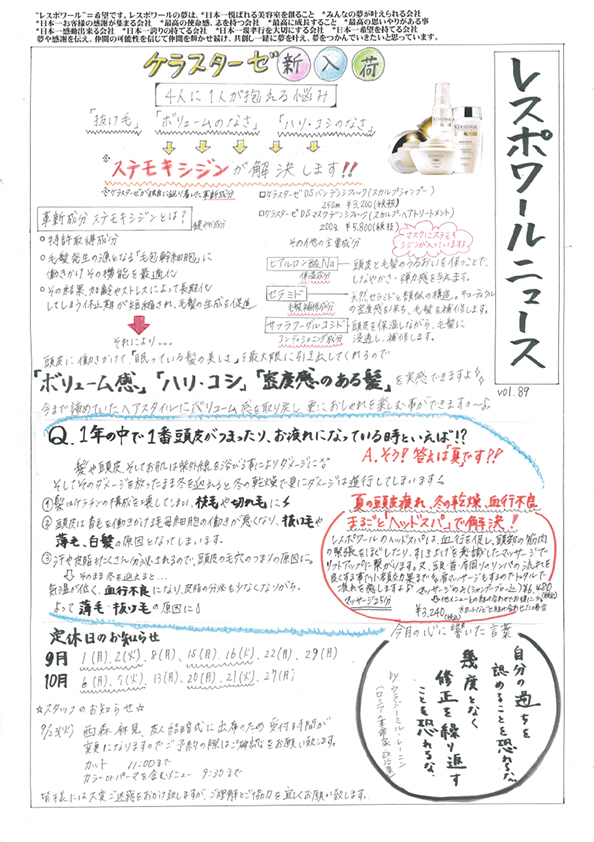 "レスポワール"=希望です。レスポワールの夢は、*日本一悦ばれる美容室を創ること *みんなの夢が叶えられる会社
*日本一お客様の感謝が集まる会社 *最高の使命感、志を持つ会社 *最高に成長すること *最高の思いやりがある事
*日本一感動出来る会社 *日本一誇りの持てる会社 *日本一親孝行を大切にする会社 *日本一希望を持てる会社
夢や感謝を伝え、仲間の可能性を信じて仲間を輝かせ続け、共創し一緒に夢を叶え、夢をつかんでいきたいと思っています。
レスポワールニュース
vol.89
ケラスターゼ新入荷
4人に1人が抱える悩み
「抜け毛」「ボリュームのなさ」「ハリ・コシのなさ」
※ステモキシジンが解決します!!
※ケラスターゼが独自に辿り着いた革新成分
KERASTASE
革新成分 ステモキシジンとは?
○特許取得成分
○毛髪発生の源となる「毛包幹細胞」に
働きかけその機能を最適化
○その結果、加齢やストレスによって長期化
してしまう休止期が短縮され、毛髪の生成を促進
□ケラスターゼDSバンデンシフィック(スカルプシャンプー)
250ml ¥3,200(税抜)
□ケラスターゼDSマスクデンシフィック(スカルプ・ヘアトリートメント)
200g ¥5,800(税抜)
その他の主要成分
ヒアルロン酸Na
保湿成分
頭皮と毛髪のうるおいを保つことで、
しなやかさ・弾力感を与えます。
セラミド
毛髪補修成分
天然セラミドと類似体の構造。キューティクル
の密度感を保ち、毛髪を補修します。
コンディショニング成分
頭皮を保湿しながら、毛髪に
浸透し、補修します。
それにより…
頭皮に働きかけて「眠っている髪の美しさ」を最大限に引き出してくれるので
「ボリューム感」「ハリ・コシ」「密度感のある髪」を実感できますよ
今まで諦めていたヘアスタイルにボリューム感を取り戻し、更におしゃれを楽しむ事ができますヨ〜♪
Q.1年の中で1番頭皮がつまったり、お疲れになっている時といえば!?
A.そう!答えは「夏」です!!
髪や頭皮、そしてお肌は紫外線を浴びる事によりダメージに
そしてそのダメージを放ったまま冬を迎えると冬の乾燥で更にダメージは進行してしまいます
①髪はケラチンの構成を壊してしまい、枝毛や切れ毛に
②頭皮は育毛を働きかける毛母細胞の働きが悪くなり、抜け毛や
薄毛、白髪の原因となってしまいます。
③汗や皮脂がたくさん分泌されるので、頭皮の毛穴のつまりの原因に。
そのまま冬を迎えると…
気温が低く、血行不良になり、皮脂の分泌も少なくなりがち。
よって薄毛・抜け毛の原因に!
夏の頭皮疲れ、冬の乾燥、血行不良
まるごと「ヘッドスパ」で解決!
レスポワールのヘッドスパは、血行を促し、頭部の筋肉
の緊張をほぐしたり、引き上げを意識したマッサージで
リフトアップに繋がります。又、頭・首・肩回りのリンパの流れを
良くする事で小顔効果まで
マッサージ25分
¥3,240(税込)
定休日のお知らせ
9月 1(月)、2(火)、8(月)、15(月)、16(火)、22(月)、29(月)
10月 6(月)、7(火)、13(月)、20(月)、21(火)、27(月)
☆スタッフのお知らせ☆
9/23(火) 西森麻見、友人結婚式に出席のため受付時間が
変更になりますのでご予約の際はご確認をお願い致します。
カット 11:00まで
カラーorパーマを含むメニュー 9:30まで
皆様には大変ご迷惑をおかけ致しますが、ご理解とご協力を宜しくお願い致します。
今月の心に響いた言葉
自分の過ちを
認めることを恐れるな。
幾度となく
修正を繰り返す
ことを恐れるな。
by ウラジーミル・レーニン
(ロシアの革命家、政治家)